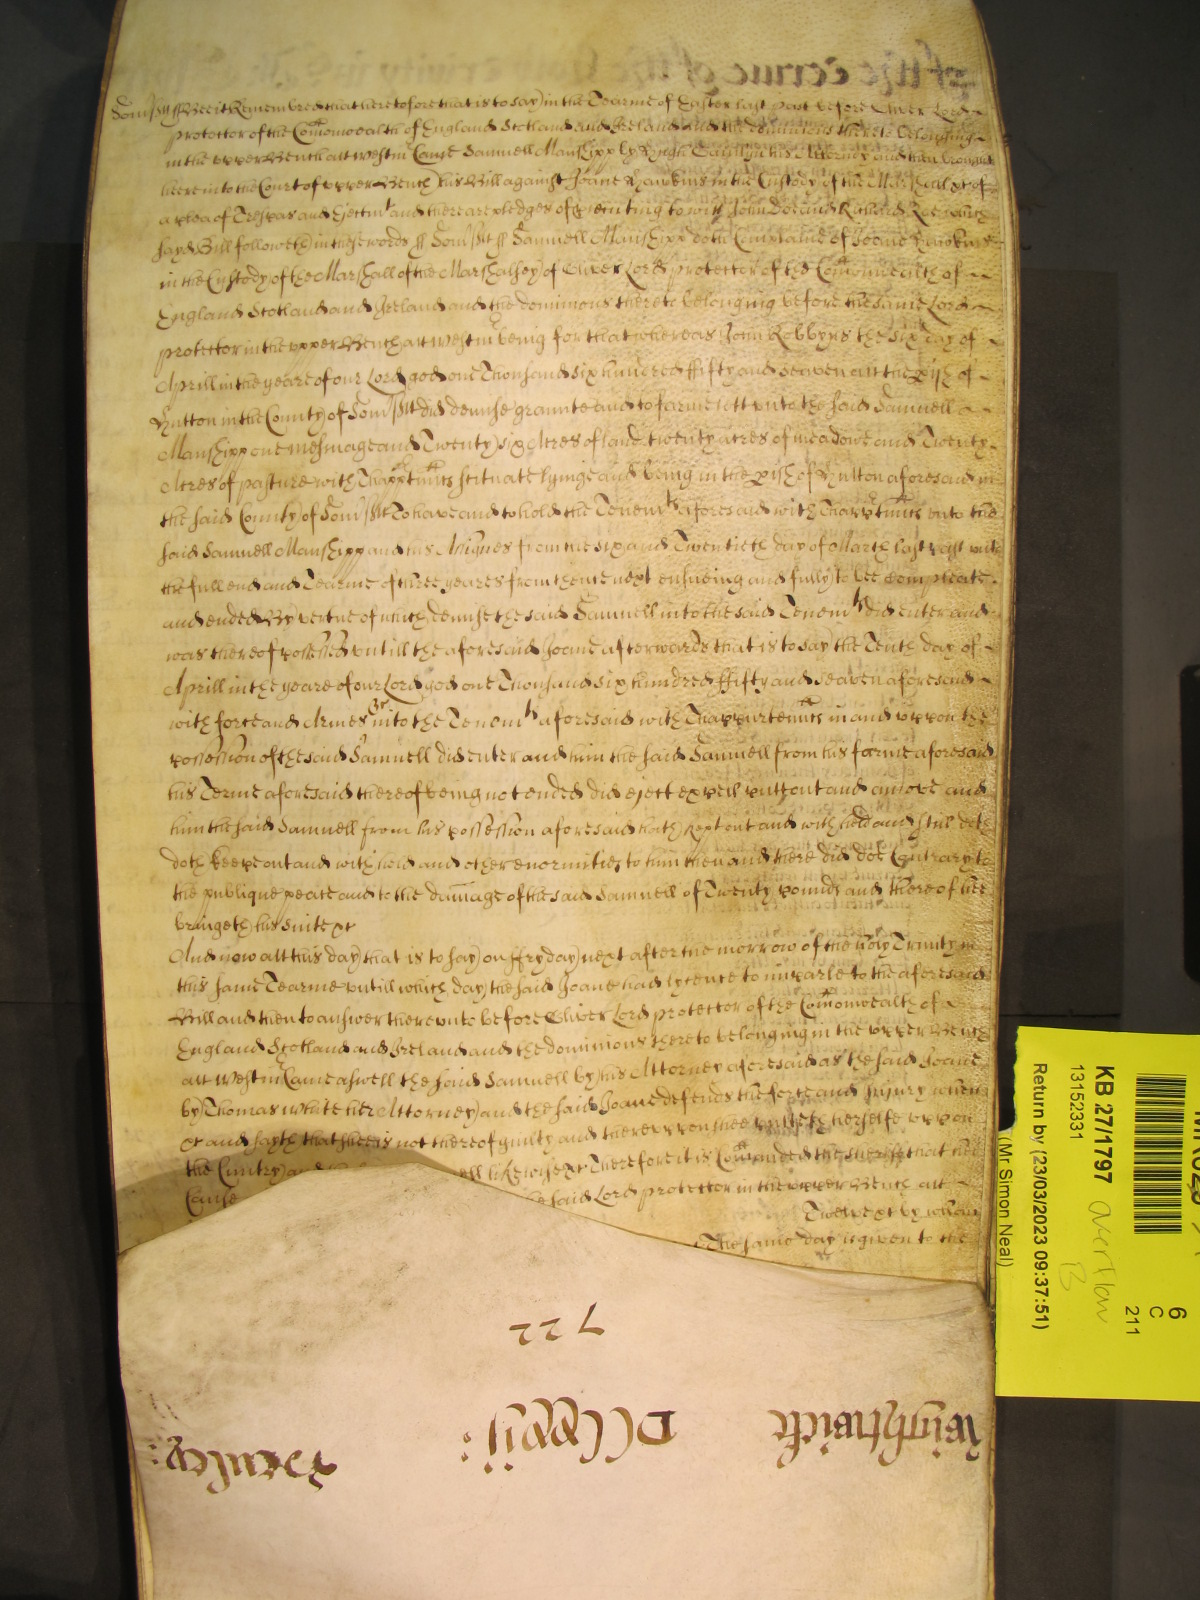 Som~sett ss Bee it Remembred that heretofore that is to say in the Tearme of Easter last past before Oliver Lord
protector of the Com̄onwealth of England Scotland and Ireland and the dominions thereto belonging
in the upper Bench att Westm̄ Came Samuell Manshipp by Hugh his Attorney and then brought
here into the Court of upper Bench his Bill against Joane Hawkins in the Custody of the Marshall &c of
a plea of Trespas and Ejectmt and there are pledges of prosecuting to witt John Doe and Richard Roe which
sayd Bill followeth in these words ss Som~sett ss Samuell Manshipp doth Complaine of Joane Hawkins
in the Custody of the Marshall of the Marshalsey of Oliver Lord protector of the Com̄onwealth of
England Scotland and Ireland and the dominions thereto belonging before the same Lord
protector in the upper Bench att Westm̄ being for that whereas John Robbyns the Six day of
Aprill in the yeare of our Lord god one Thousand six hundred ffifty and seaven att the pish of
Hutton in the County of Som~sett did demise graunte and to farme lett unto the said Samuell
Manshipp one messuage and Twenty six Acres of land twenty acres of meadowe and Twenty
Acres of pasture with Thapptennts scituate lyinge and being in the pish of Hutton aforesaid in
the said County of Som~sett To have and to hold the Tenemts aforesaid with Thapptennts unto the
said Samuell Manshipp and his Assignes from the six and Twentieth day of March last past untill
the full end and Tearme of three yeares from thence next ensueing and fully to bee Compleate
and ended By vertue of which demise the said Samuell into the said Tenemts did enter and
was thereof possessed untill the aforesaid Joane afterwards that is to say the Tenth day of
Aprill in the yeare of our Lord god one Thousand six hundred ffifty and seaven aforesaid
with force and Armes &c into the Tenemts aforesaid with Thappurtennts in and uppon the
possession of the said Samuell did enter and him the said Samuell from his farme aforesaid
his Terme aforesaid thereof being not ended did eject expell putt out and amove and
him the said Samuell from his possession aforesaid hath kept out and with held and still doth
doth keepe out and with hold and other enormities to him then and there did doe Contrary to
the publique peace and to the damage of the said Samuell of Twenty pounds and thereof hee
bringeth his suite &c
And now att this day that is to say on ffryday next after the morrow of the holy Trinity in
this same Tearme untill which day the said Joane had lycence to imparle to the aforesaid
Bill and then to answer thereunto before Oliver Lord protector of the Com̄onwealth of
England Scotland and Ireland and the dominions thereto belonging in the upper Bench
att Westm̄ Came aswell the said Samuell by his Attorney aforesaid as the said Joane
by Thomas White her Attorney and the said Joane defends the force and Injury when
&c and sayth that shee is not thereof guilty and thereuppon shee putteth herselfe uppon
the Cuntry and ell likewise &c Therefore it is Com̄anded the sheriffe that hee
Cause he said Lord protector in the upper Bench att
Twelve &c by whom
The same day is given to the
722
Wightwick DCCxxij:
Henley:
KB 27/1797
13152331
Return by (23/03/2023 09:37:51)
(Mr Simon Neal)
overflow
B
6
C
211